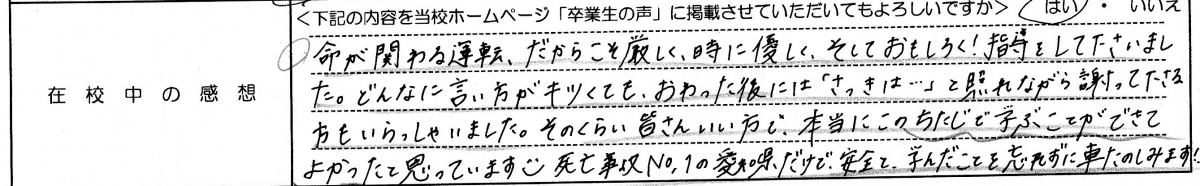 <下記の内容を当校ホームページ「卒業生の声」に掲載させていただいてもよろしいですか> はい ・ いいえ
在校中の感想
命が関わる運転、だからこそ厳しく、時に優しく、そしておもしろく!指導をして下さいまし
た。どんなに言い方がキツくても、おわった後には「さっきは…」と照れながら謝って下さる
方もいらっしゃいました。そのくらい皆さんいい方で、本当にこのちたじで学ぶことができて
よかったと思っています 死亡事故No.1の愛知県だけど、安全と、学んだことを忘れずに車たのしみます!